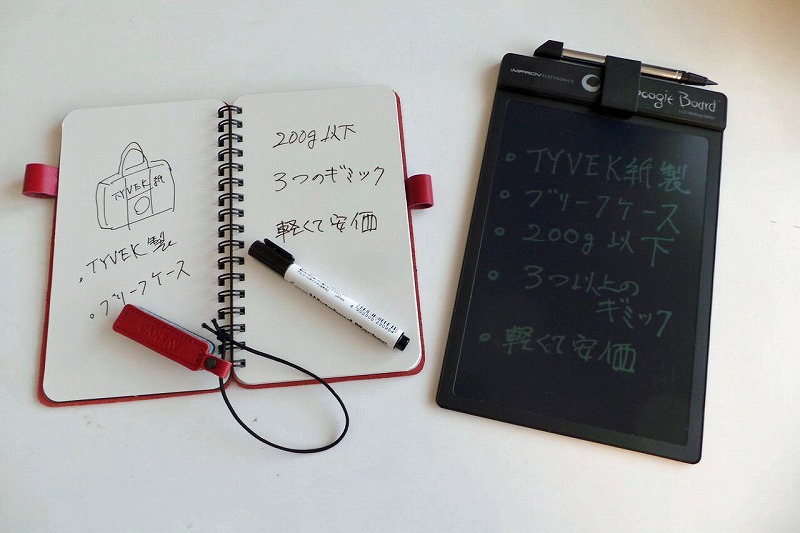 TYVEK 紙
・TYVEK 製
・ブリーフケース
200g 以下
3つのギミック
軽くて安価
IMPROV ELECTRONICS
oogie Board
LCD Writing Tablet
○ TYVEK紙製
○ ブリーフケース
○ 200g 以下
○ 3つ以上の
ギミック
○ 軽くて安価